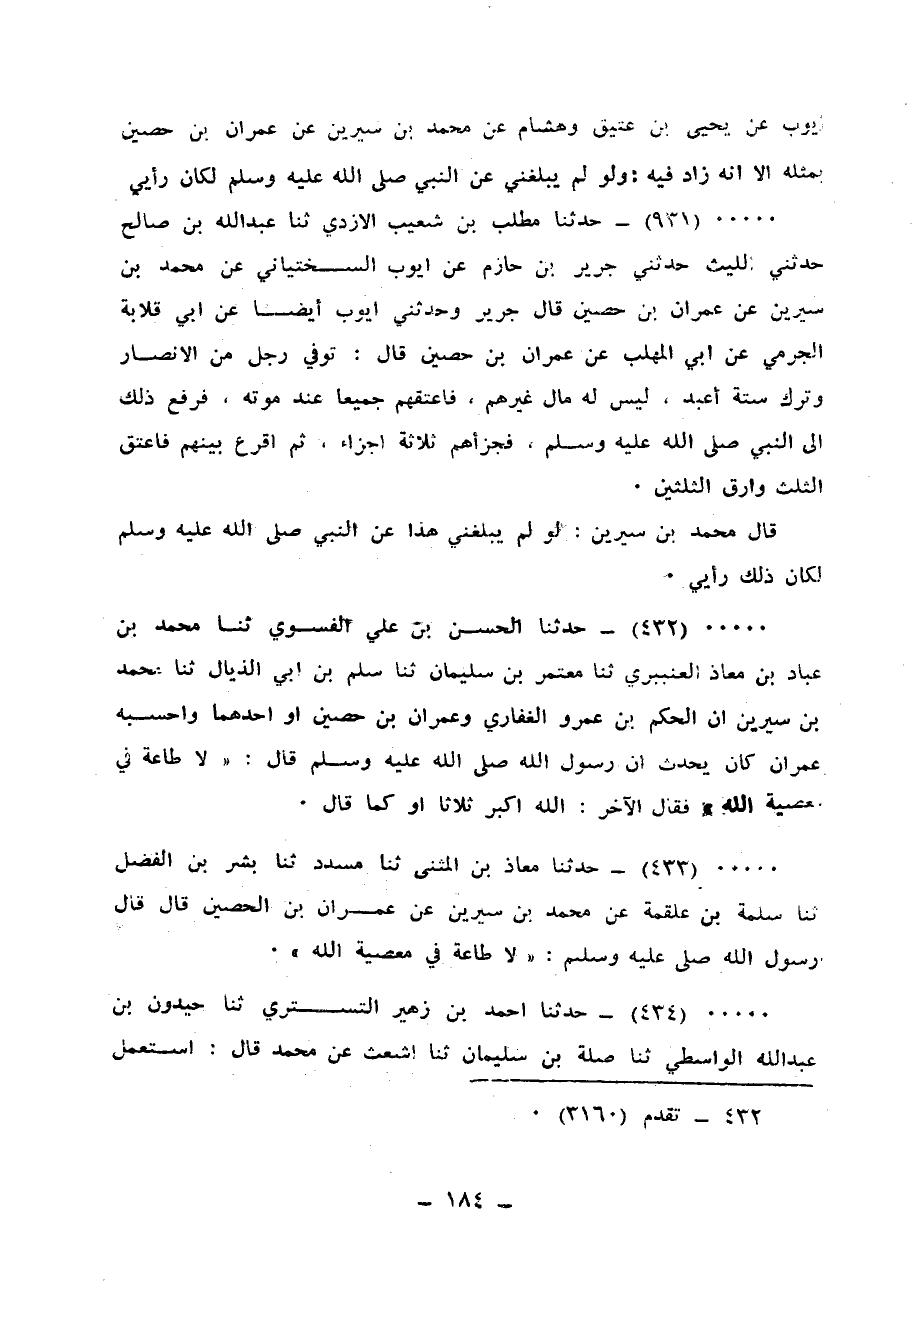 ايوب عن يحيى بن عتيق وهشام عن محمد بن سيرين عن عمران بن حصين
بمثله الا انه زاد فيه : ولو لم يبلغني عن النبي صلى الله عليه وسلم لكان رأيي
٠٠٠٠٠ (٩٣١) ـ حدثنا مطلب بن شعيب الازدي ثنا عبدالله بن صالح
حدثني الليث حدثني جرير بن حازم عن ايوب الســختياني عن محمد بن
سيرين عن عمران بن حصين قال جرير وحدثني ايوب أيضــا عن ابي قلابة
الجرمي عن ابي المهلب عن عمران بن حصين قال : توفي رجل من الانصــار
وترك ستة أعبد ، ليس له مال غيرهم ، فاعتقهم جميعا عند موته ، فرفع ذلك
الى النبي صلى الله عليه وســلم ، فجزأهم ثلاثة اجزاء ، ثم اقرع بينهم فاعتق
الثلث وارق الثلثين ٠
قال محمد بن سيرين : لو لم يبلغني هذا عن النبي صلى الله عليه وسلم
لكان ذلك رأيي ٠
٠٠٠٠٠ (٤٣٢) ـ حدثنا الحســن بن علي الفســوي ثنــا محمد بن
عباد بن معاذ العنبري ثنا معتمر بن سليمان ثنا سلم بن ابي الذيال ثنا محمد
بن سيرين ان الحكم بن عمرو الغفاري وعمران بن حصين او احدهما واحســبه
عمران كان يحدث ان رسول الله صلى الله عليه وســلم قال : « لا طاعة في
معصية الله » فقال الآخر : الله اكبر ثلاثا او كما قال ٠
٠٠٠٠٠ (٤٣٣) ـ حدثنا معاذ بن المثنى ثنا مسدد ثنا بشر بن الفضل
ثنا سلمة بن علقمة عن محمد بن سيرين عن عمــران بن الحصين قال قال
رسول الله صلى عليه وسليم : « لا طاعة في معصية الله » ٠
٠٠٠٠٠ (٤٣٤) ـ حدثنا احمد بن زهير التســتري ثنا حيدون بن
عبدالله الواسطي ثنا صلة بن سليمان ثنا اشعث عن محمد قال : استعمل
٤٣٢ ـ تقدم (٣١٦٠) ٠
ـ ١٨٤ ـ